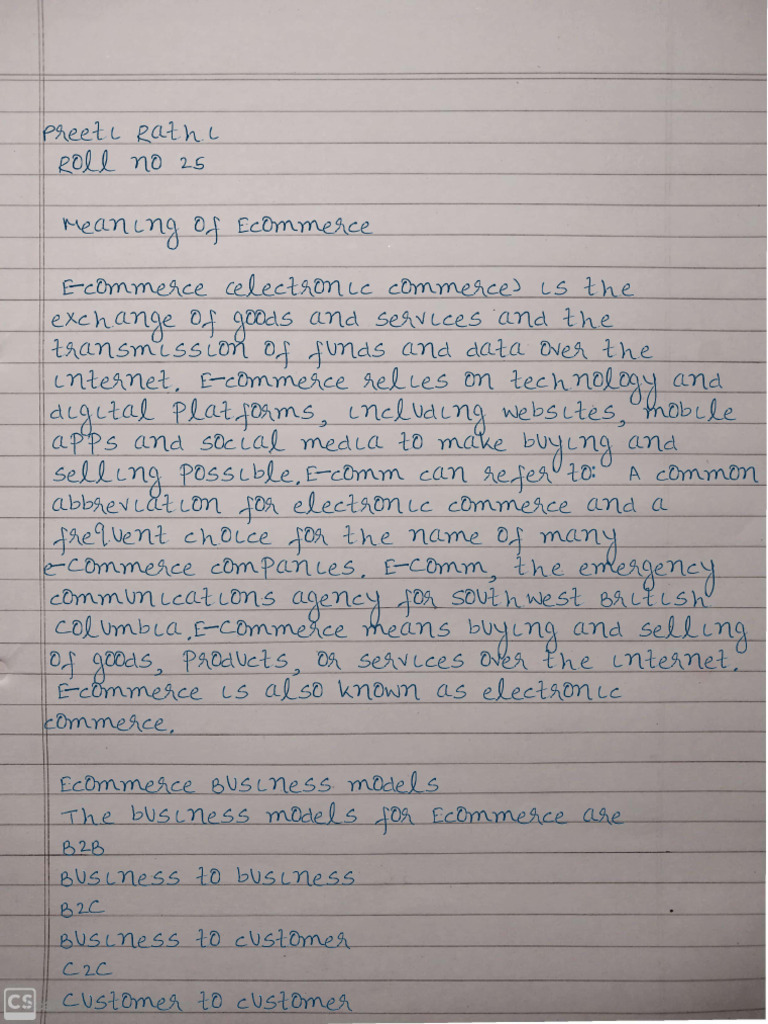 Preeti Rathi
Roll no 25
Meaning of Ecommerce
E-commerce (electronic commerce) is the
exchange of goods and services and the
transmission of funds and data over the
internet. E-commerce relies on technology and
digital platforms, including websites, mobile
apps and social media to make buying and
selling possible. E-comm can refer to: A common
abbreviation for electronic commerce and a
frequent choice for the name of many
e-commerce companies. E-comm, the emergency
communications agency for southwest British
Columbia. E-commerce means buying and selling
of goods, products, or services over the internet.
E-commerce is also known as electronic
commerce.
Ecommerce Business models
The business models for Ecommerce are
B2B
Business to business
B2C
Business to customer
C2C
Customer to customer
CS